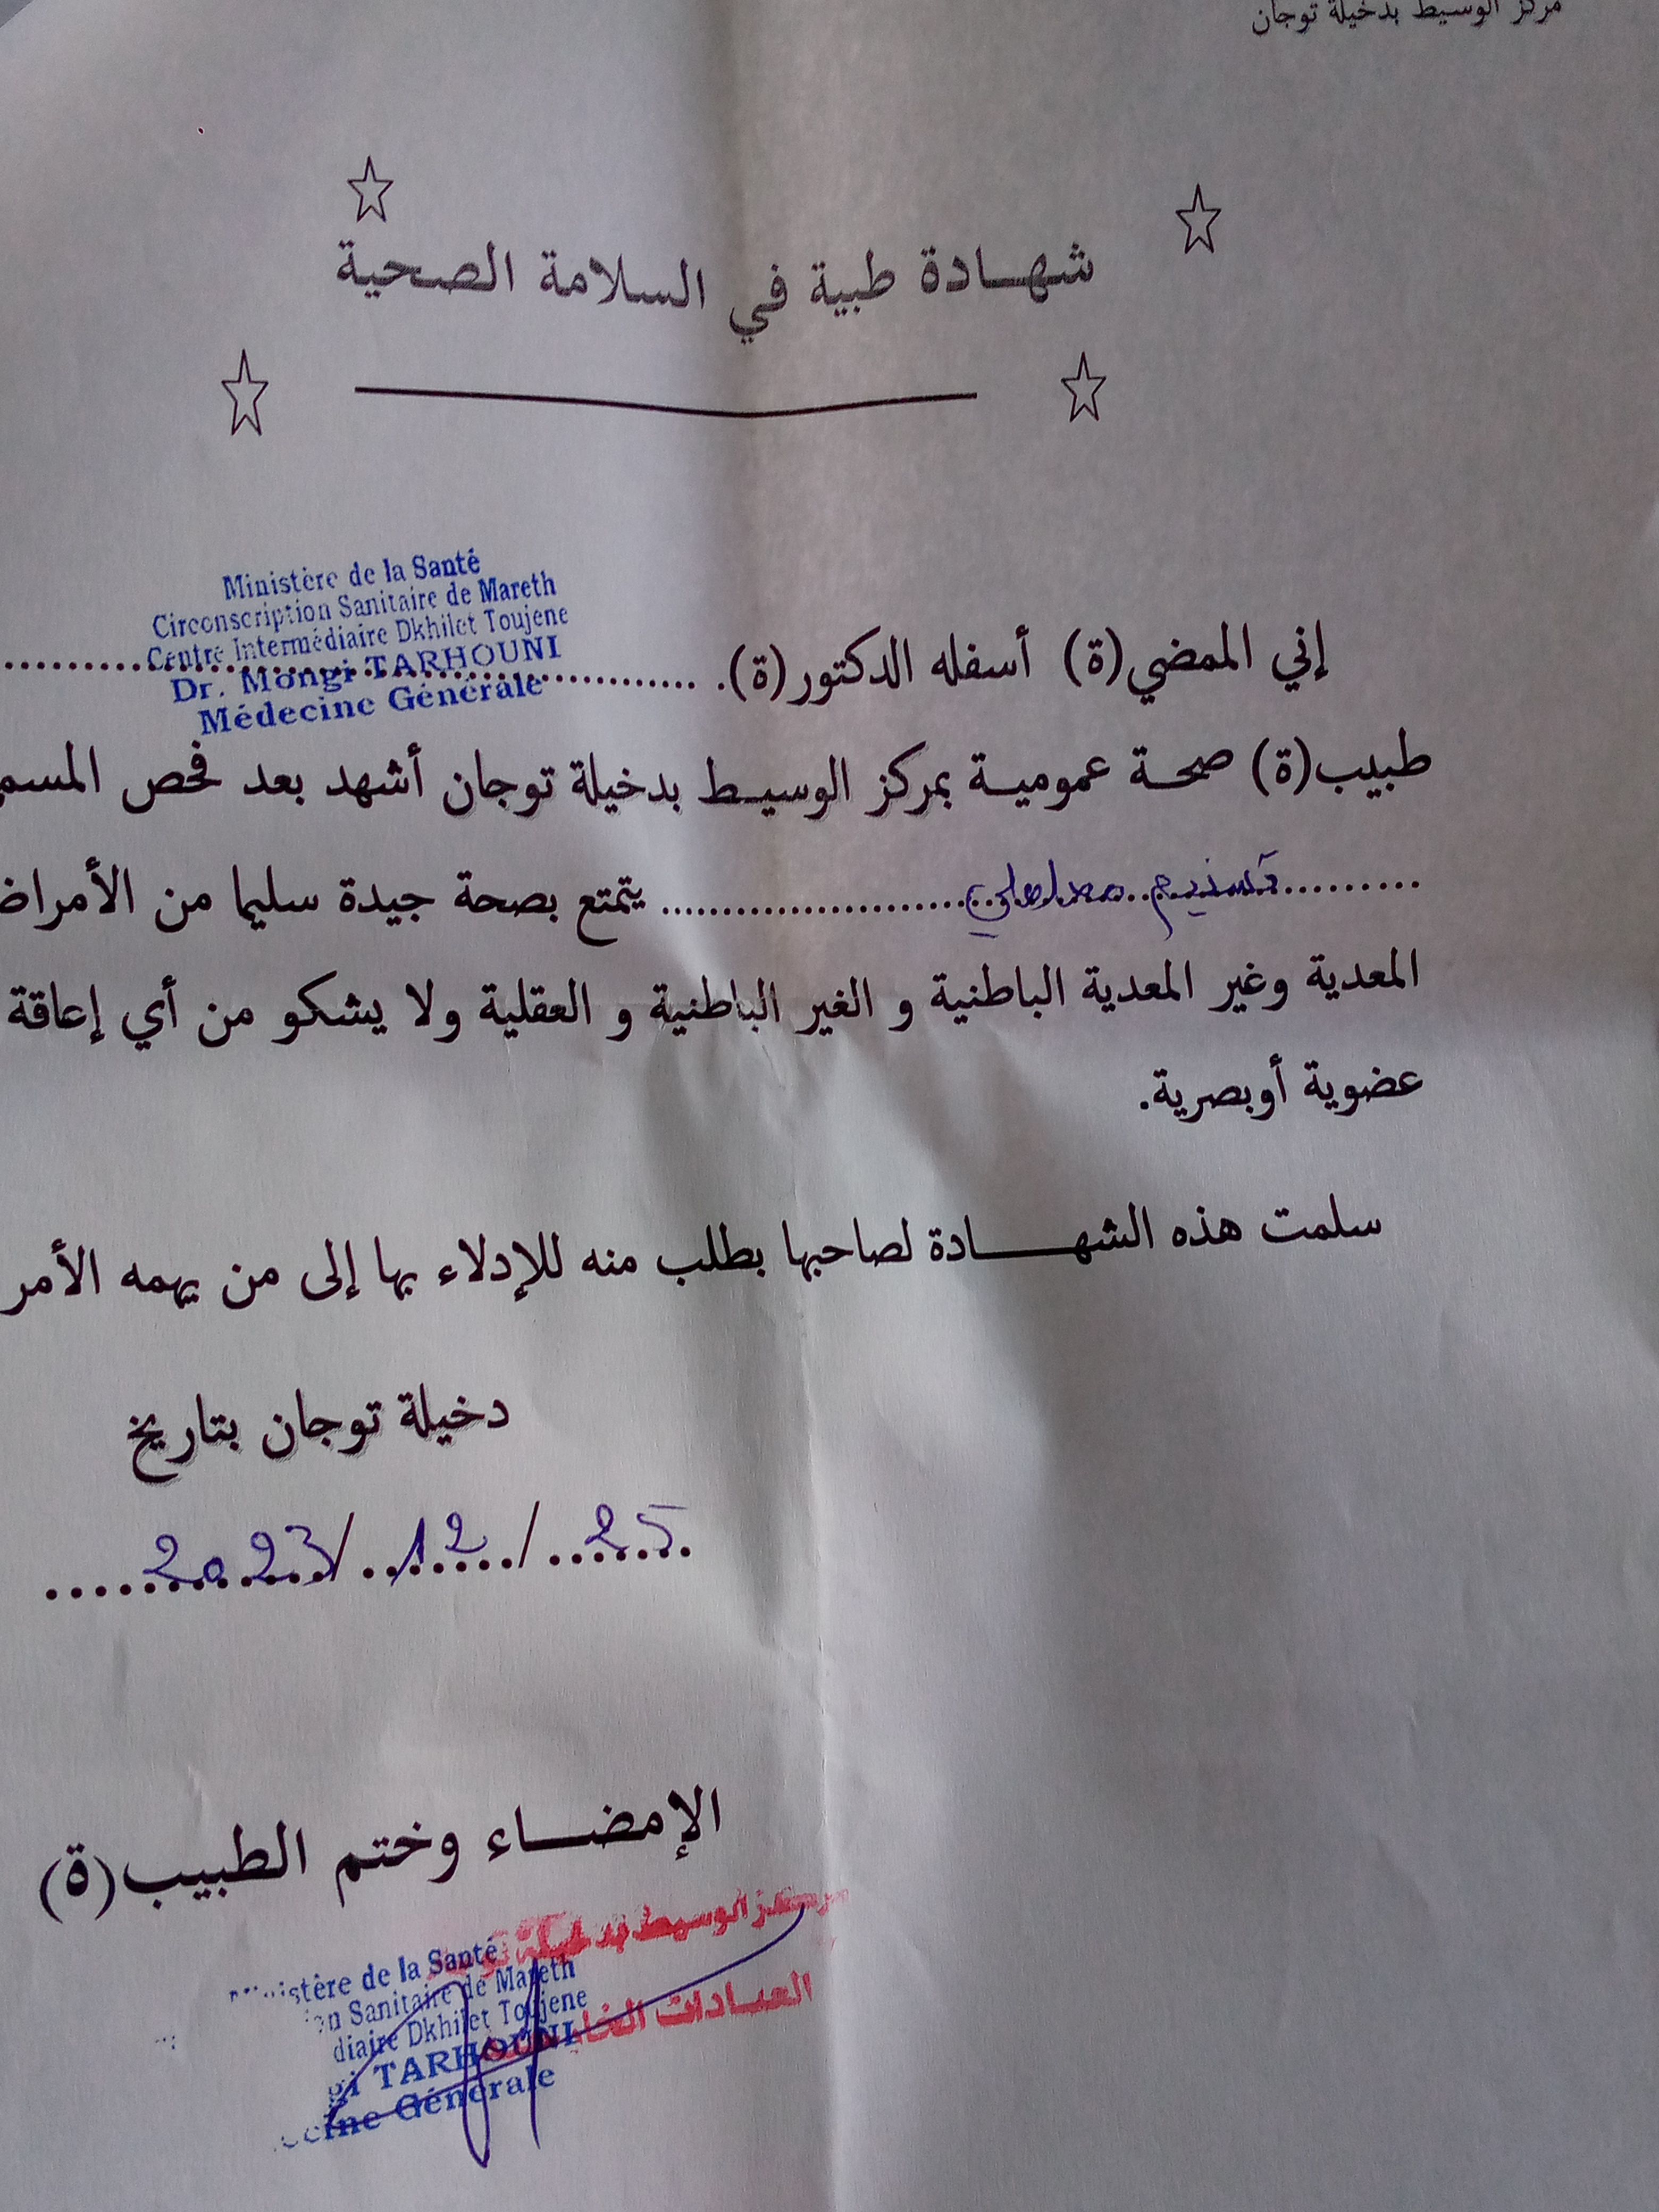 مركز الوسيط بدخيلة توجان
شهادة طبية في السلامة الصحية
Ministère de la Santé
Circonscription Sanitaire de Mareth
Centre Intermédiaire Dkhilet Toujene
Dr. Mongi TARHOUNI
Médecine Générale
إني الممضي(ة) أسفله الدكتور(ة).
طبيب(ة) صحة عمومية بمركز الوسيط بدخيلة توجان أشهد بعد فحص المسم
تسنيم يتمتع بصحة جيدة سليما من الأمراض
المعدية وغير المعدية الباطنية و الغير الباطنية و العقلية ولا يشكو من أي إعاقة
عضوية أوبصرية.
سلمت هذه الشهادة لصاحبها بطلب منه للإدلاء بها إلى من يهمه الأمر
دخيلة توجان بتاريخ
25/12/2023
الإمضاء وختم الطبيب(ة)
مركز الوسيط بدخيلة
العيادات
istère de la Santé
on Sanitaire de Mareth
diaire Dkhilet Toujene
gi TARHOUNI
cine Générale